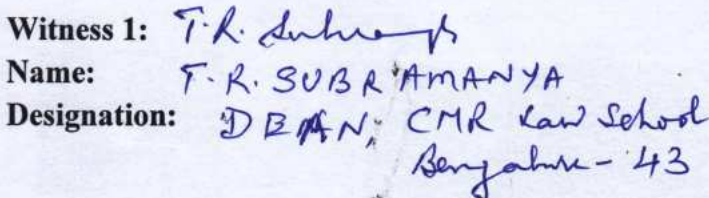 Witness 1: T.R. Subramanya
Name: T.R. SUBRAMANYA
Designation: DEAN, CMR Law School
Bengaluru - 43